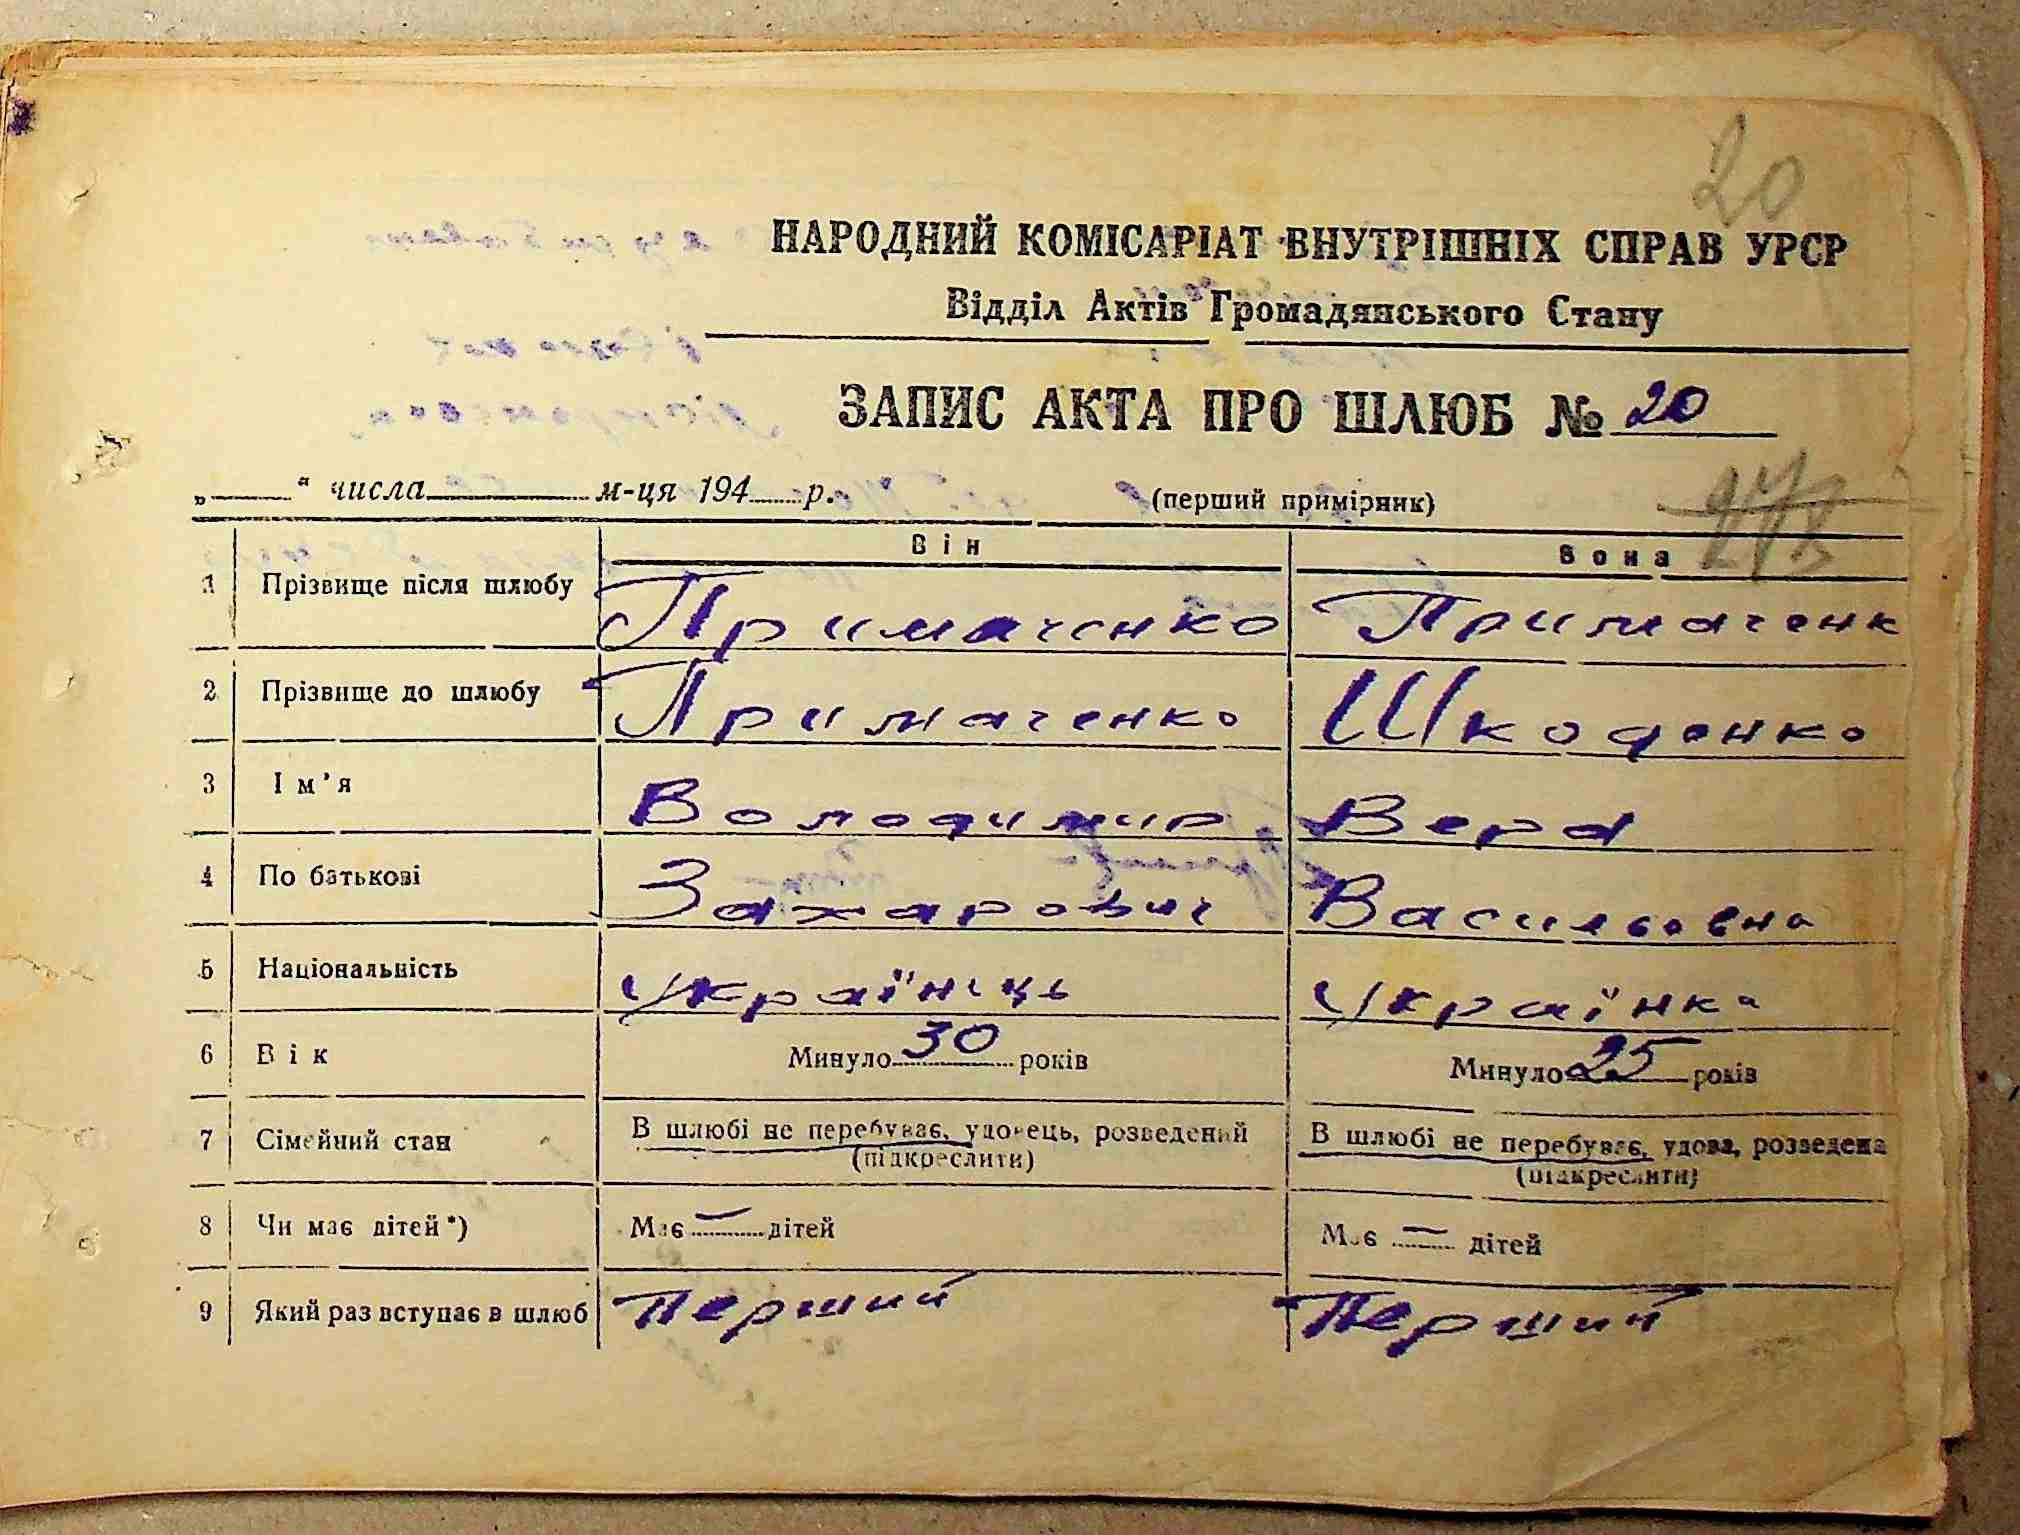 20
НАРОДНИЙ КОМІСАРІАТ ВНУТРІШНІХ СПРАВ УРСР
Відділ Актів Громадянського Стану
ЗАПИС АКТА ПРО ШЛЮБ № 20
„ “ числа м-ця 194 р. (перший примірник)
Він Вона
1 Прізвище після шлюбу Примаченко Примаченк
2 Прізвище до шлюбу Примаченко Шкоденко
3 Ім'я Володимир Вера
4 По батькові Захарович Васильовна
5 Національність Українець Українка
6 Вік Минуло 30 років Минуло 25 років
7 Сімейний стан В шлюбі не перебуває, удовець, розведений В шлюбі не перебуває, удова, розведена
(підкреслити) (підкреслити)
8 Чи має дітей*) Має — дітей Має — дітей
9 Який раз вступає в шлюб Перший Перший